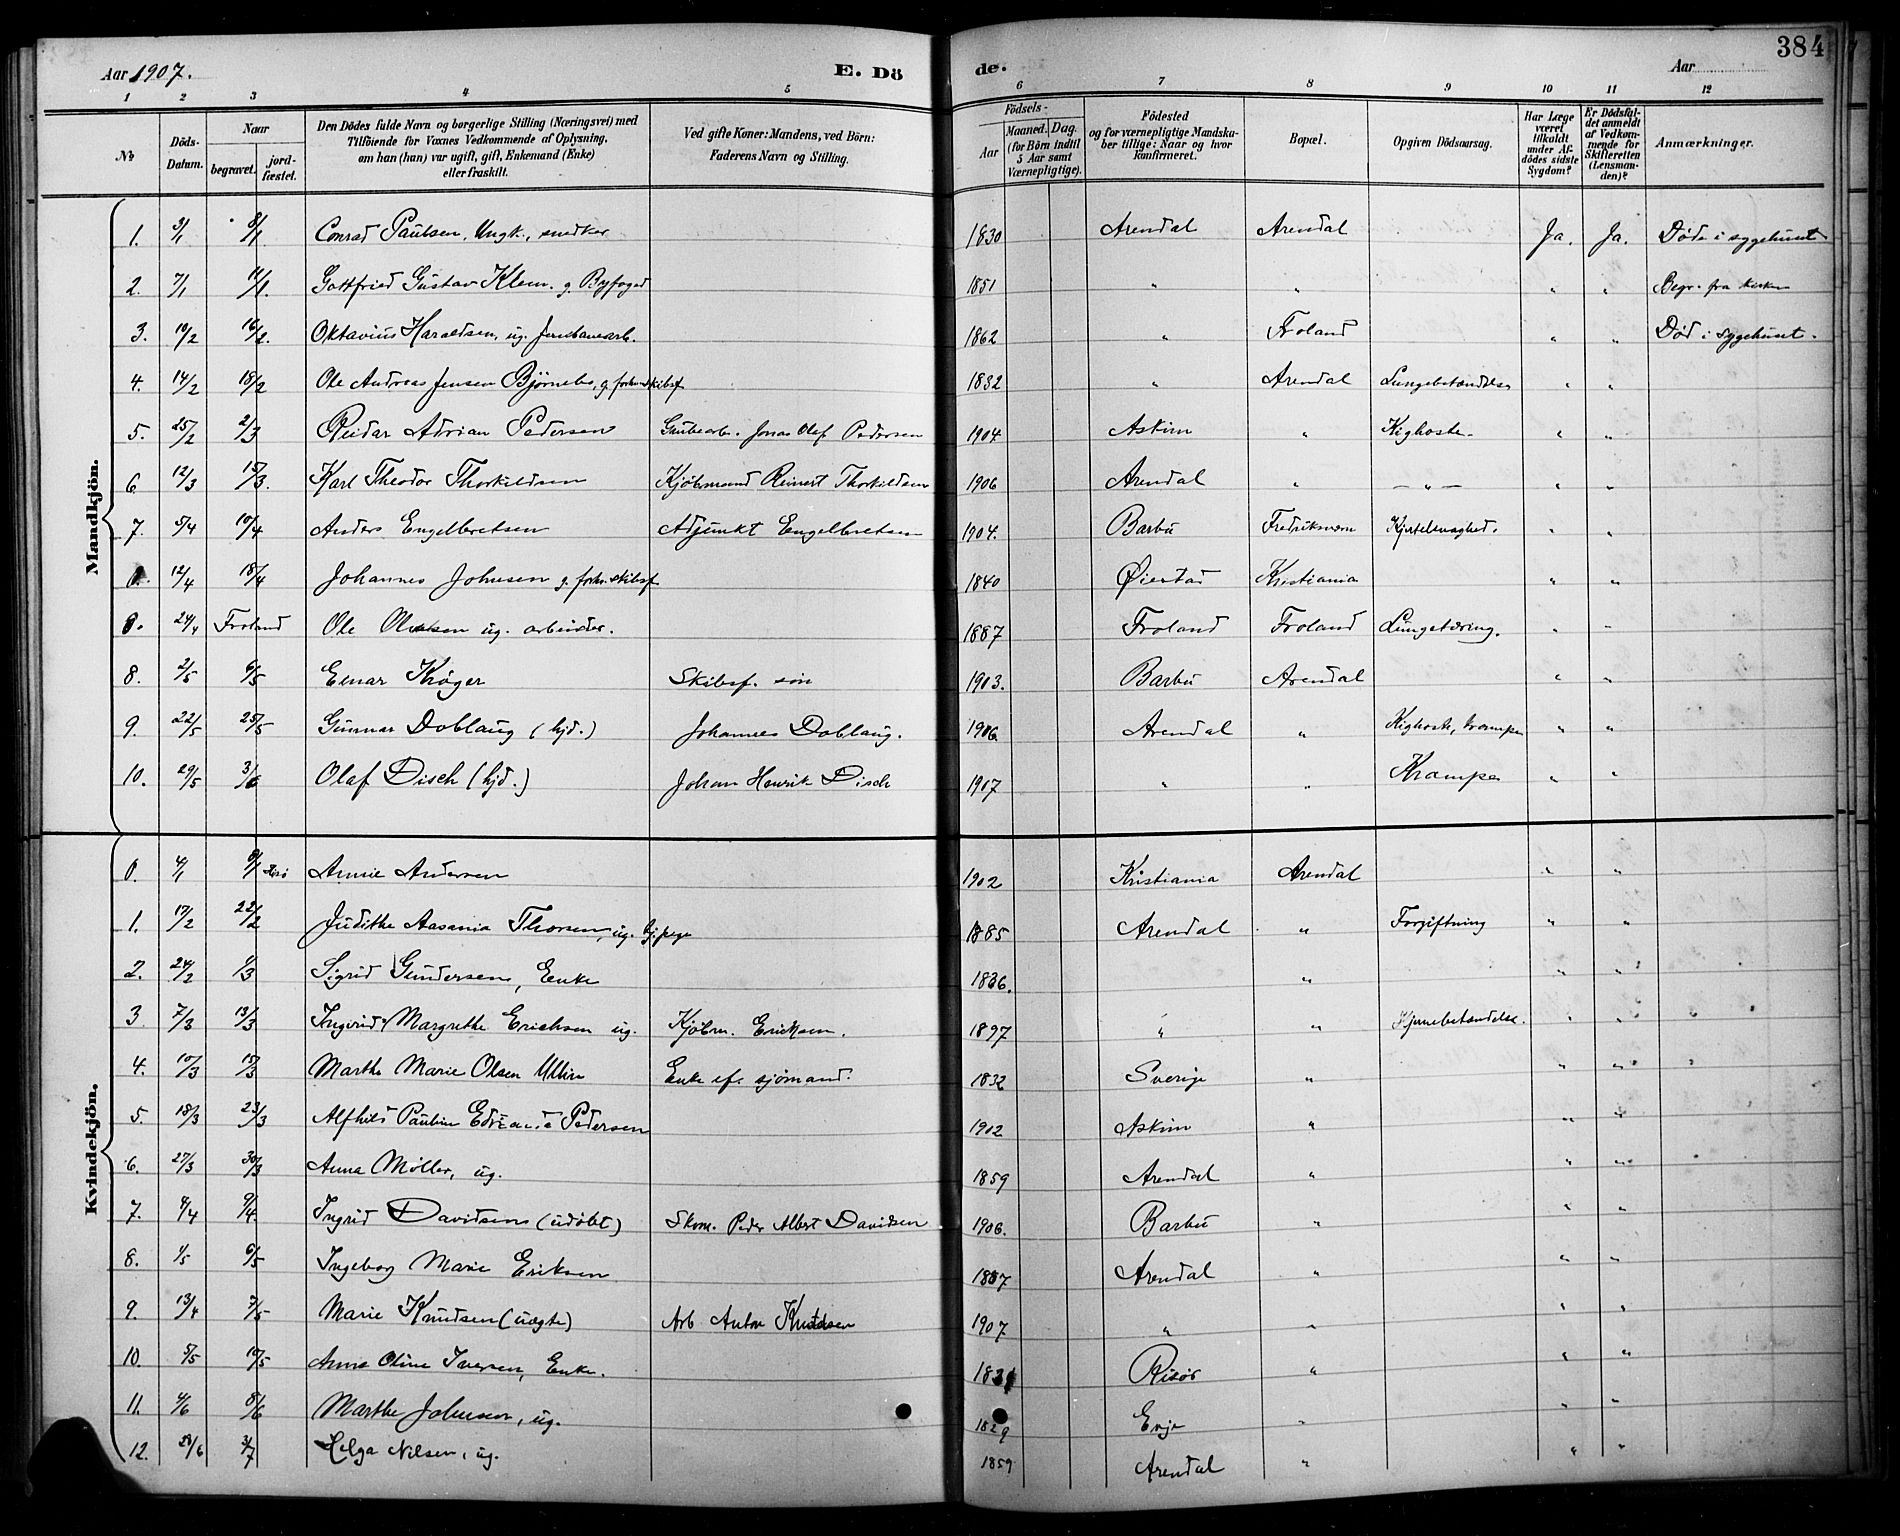 Aar 1907. E. Dö de. Aar 384
1 2 3 4 5 6 7 8 9 10 11 12
No
Döds-Datum.
Naar
begravet.
jord-fæstet.
Den Dödes fulde Navn og borgerlige Stilling (Næringsvei) med
Tilföiende for Voxnes Vedkommende af Oplysning,
om han (hun) var ugift, gift, Enkemand (Enke)
eller fraskilt.
Ved gifte Koner: Mandens, ved Börn:
Faderens Navn og Stilling.
Födsels-
Aar
Maaned. Dag.
(for Börn indtil
5 Aar samt
Værnepligtige).
Födested
og for værnepligtige Mandska-
ber tillige: Naar og hvor
konfirmeret.
Bopæl.
Opgiven Dödsaarsag.
Har Læge
været
tilkaldt
under Af-
dödes sidste
Sygdom?
Er Dödsfal-
det anmeldt
af Vedkom-
mende for
Skifteretten
(Lensman-
den)?
Anmærkninger.
Mandkjön.
1. 3/1 8/1 Conrad Paulsen, Ungk., snedker 1830 Arendal Arendal Ja. Ja. Døde i sygehuset
2. 7/1 11/1. Gottfried Gustav Klem. g. Byfoged 1851 " " " " Begr. fra kirken
3. 10/2 16/2. Oktavius Haraldsen, ug. Jernbanearb. 1862 " Froland " " Død i sygehuset.
4. 14/2 18/2 Ole Andreas Jensen Bjørnebo, g. forhv. skibsf 1832 " Arendal Lungebetændelse " "
5. 25/2 2/3 Reidar Adrian Pedersen Grubearb. Jonas Olaf Pedersen 1904 Askim " Kighoste " "
6. 12/3 15/3. Karl Theodor Thorkildsen Kjøbmand Reinert Thorkildsen 1906 Arendal " — " — " "
7. 5/4 10/4 Anders Engelbretsen Adjunkt Engelbretsen 1904. Barbu Fredriksværn Hjertesvaghed. " "
0. 12/4 18/4 Johannes Johnsen g. forhv. skibsf 1840 Øiestad Kristiania " "
0. 24/4 Froland Ole Olsen ug. arbeider. 1887 Froland Froland Lungetæring. " "
8. 2/5 6/5 Einar Krøger Skibsf. søn 1903. Barbu Arendal " "
9. 22/5 25/5 Gunnar Doblaug (hjd.) Johannes Doblaug. 1906 Arendal " Kighoste, krampe " "
10. 29/5 3/6 Olaf Disch (hjd.) Johan Henrik Disch 1907 " " Krampe " "
Kvindekjön.
0. 4/1 8/1 Annie Andersen 1902 Kristiania Arendal " "
1. 17/2 22/2 Judithe Aasania Thorsen, ug. 1885 Arendal " Forgiftning " "
2. 24/2 1/3 Sigrid Gundersen, Enke 1836. " " "
3. 7/3 13/3 Ingrid Margrethe Erichsen ug. Kjøbm. Eriksen. 1897 " " Hjernebetændelse. " "
4. 10/3 15/3 Marthe Marie Olsen Ullin Enke ef. sjømand. 1832 Sverige " " "
5. 18/3 23/3 Alfhild Pauline Pedersen 1902 Askim " " "
6. 27/3 30/3 Anna Møller, ug. 1859 Arendal " " "
7. 4/4 9/4. Ingrid Davidsen (udøbt) Skom. Peder Albert Davidsen 1906. Barbu " " "
8. 1/5 6/5 Ingeborg Marie Eriksen Arendal " " "
9. 13/4 7/5 Marie Knudsen (uægte) Arb Anton Knudsen 1907 " " " "
10. 5/5 10/5 Anne Oline Iversen, Enke. Risør " " "
11. 4/6 8/6 Marthe Johnsen, ug. 1829 Evje " " "
12. 28/6 3/7 Helga Nilsen, ug. 1859 Arendal " " "